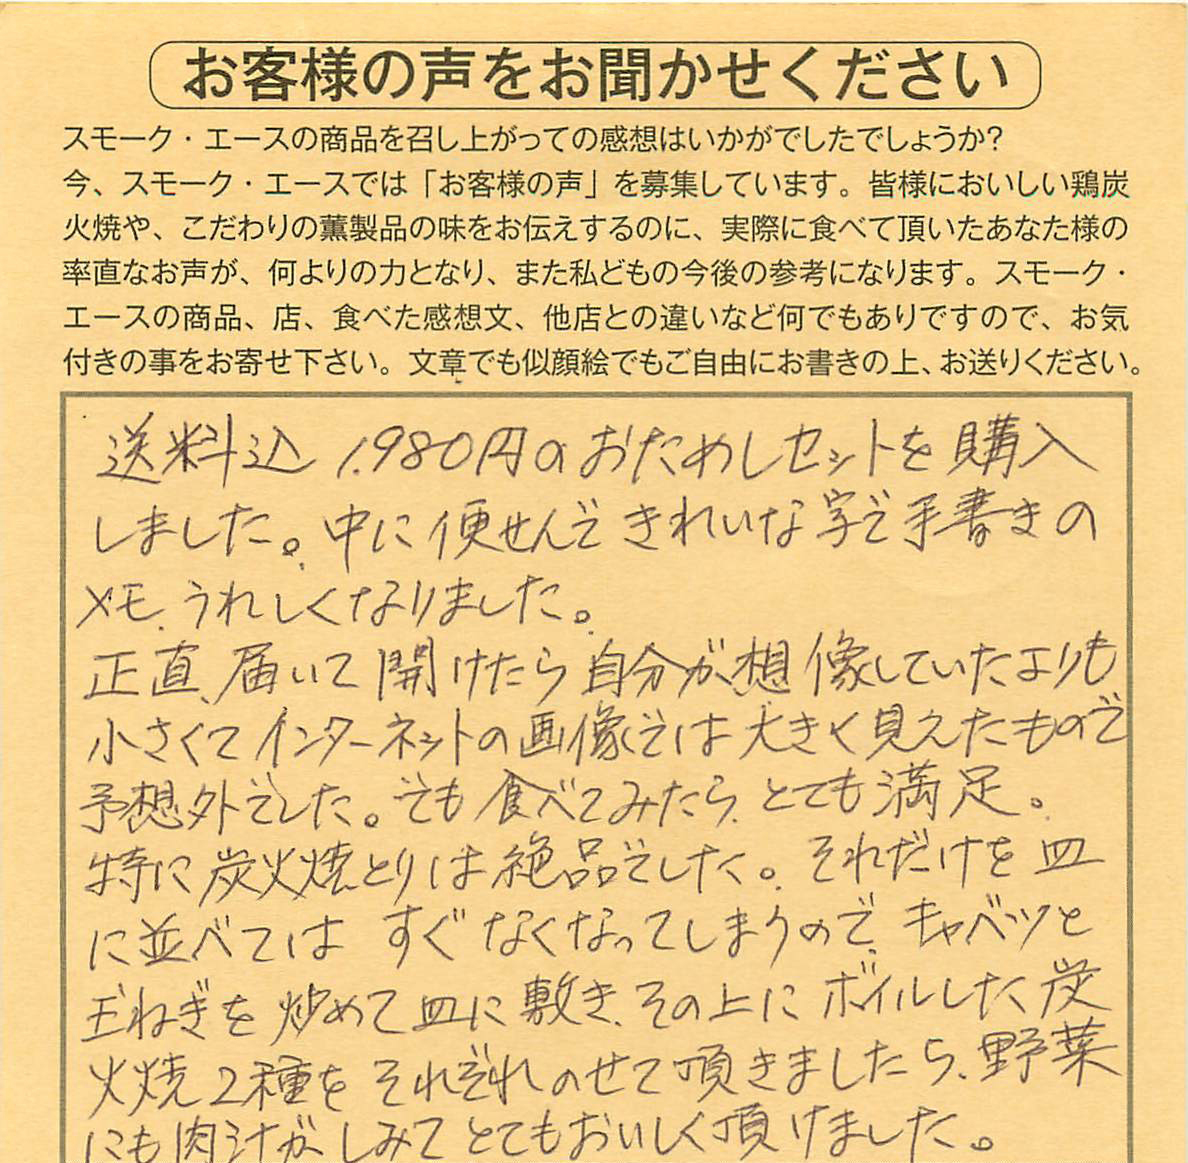 お客様の声をお聞かせください
スモーク・エースの商品を召し上がっての感想はいかがでしたでしょうか?
今、スモーク・エースでは「お客様の声」を募集しています。皆様においしい鶏炭
火焼や、こだわりの薫製品の味をお伝えするのに、実際に食べて頂いたあなた様の
率直なお声が、何よりの力となり、また私どもの今後の参考になります。スモーク・
エースの商品、店、食べた感想文、他店との違いなど何でもありですので、お気
付きの事をお寄せ下さい。文章でも似顔絵でもご自由にお書きの上、お送りください。
送料込 1.980円のおためしセットを購入
しました。中に便せんできれいな字で手書きの
メモ、うれしくなりました。
正直、届いて開けたら自分が想像していたよりも
小さくてインターネットの画像では大きく見えたもので
予想外でした。でも食べてみたら、とても満足。
特に炭火焼とりは絶品でした。それだけを皿
に並べては すぐなくなってしまうので、キャベツと
玉ねぎを炒めて皿に敷き、その上にボイルした炭
火焼2種をそれぞれのせて頂きましたら、野菜
にも肉汁がしみてとてもおいしく頂けました。